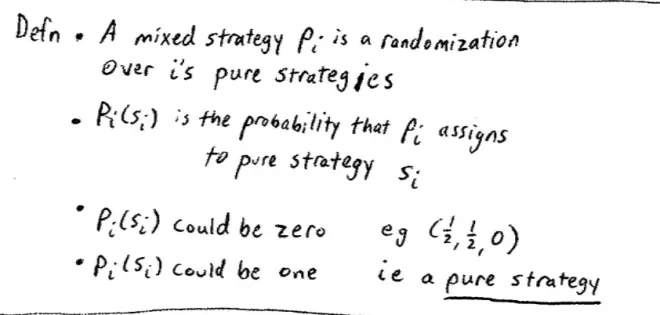 Defn • A mixed strategy Pi is a randomization
over i's pure strategies
• Pi(si) is the probability that Pi assigns
to pure strategy si
• Pi(si) could be zero eg (1/2, 1/2, 0)
• Pi(si) could be one ie a pure strategy